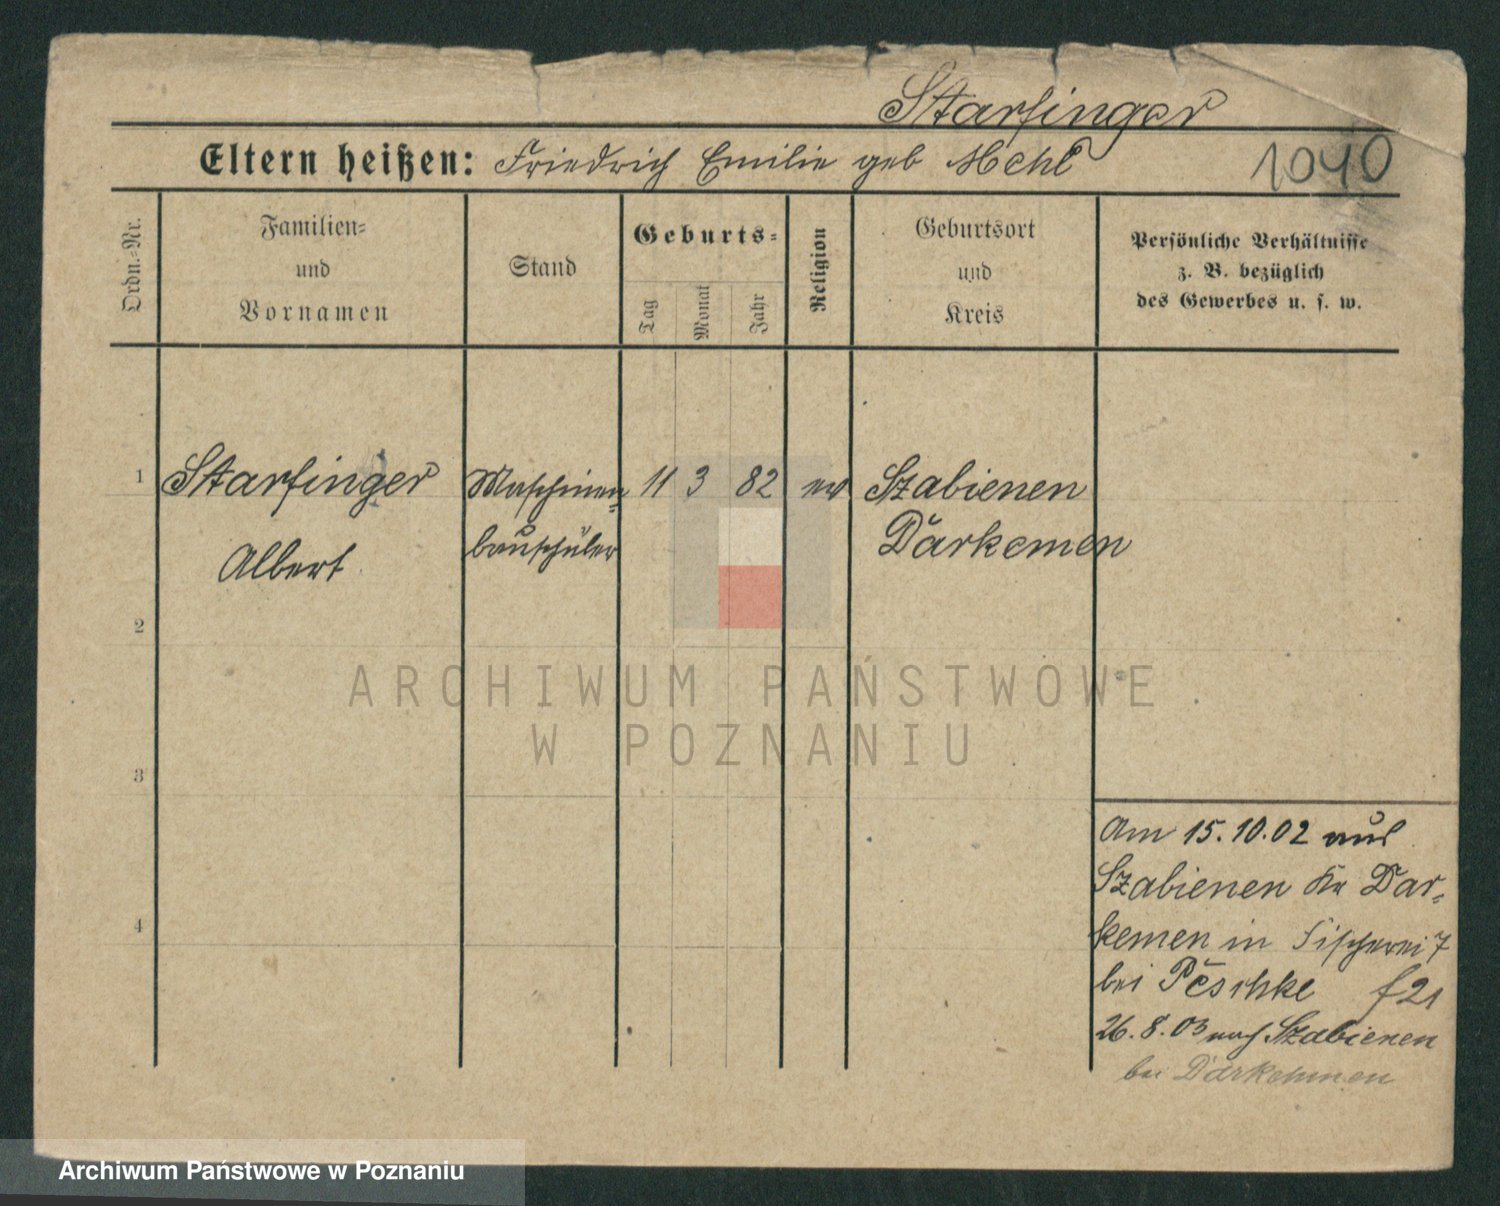 Starfinger
Eltern heißen: Friedrich Emilie geb Mehl
1040
Ordn.-Nr.
Familien-
und
Vornamen
Stand
Geburts-
Tag
Monat
Jahr
Religion
Geburtsort
und
Kreis
Persönliche Verhältnisse
z. B. bezüglich
des Gewerbes u. s. w.
1 Starfinger Maschinen- 11 3 82 ev Szabienen
Albert bauschüler Darkemen
2
3
4
Am 15.10.02 aus
Szabienen Kr Dar-
kemen in Fischerei 7
bei Peschke f 21
26.8.03 nach Szabienen
bei Darkehmen
ARCHIWUM PAŃSTWOWE
W POZNANIU
Archiwum Państwowe w Poznaniu